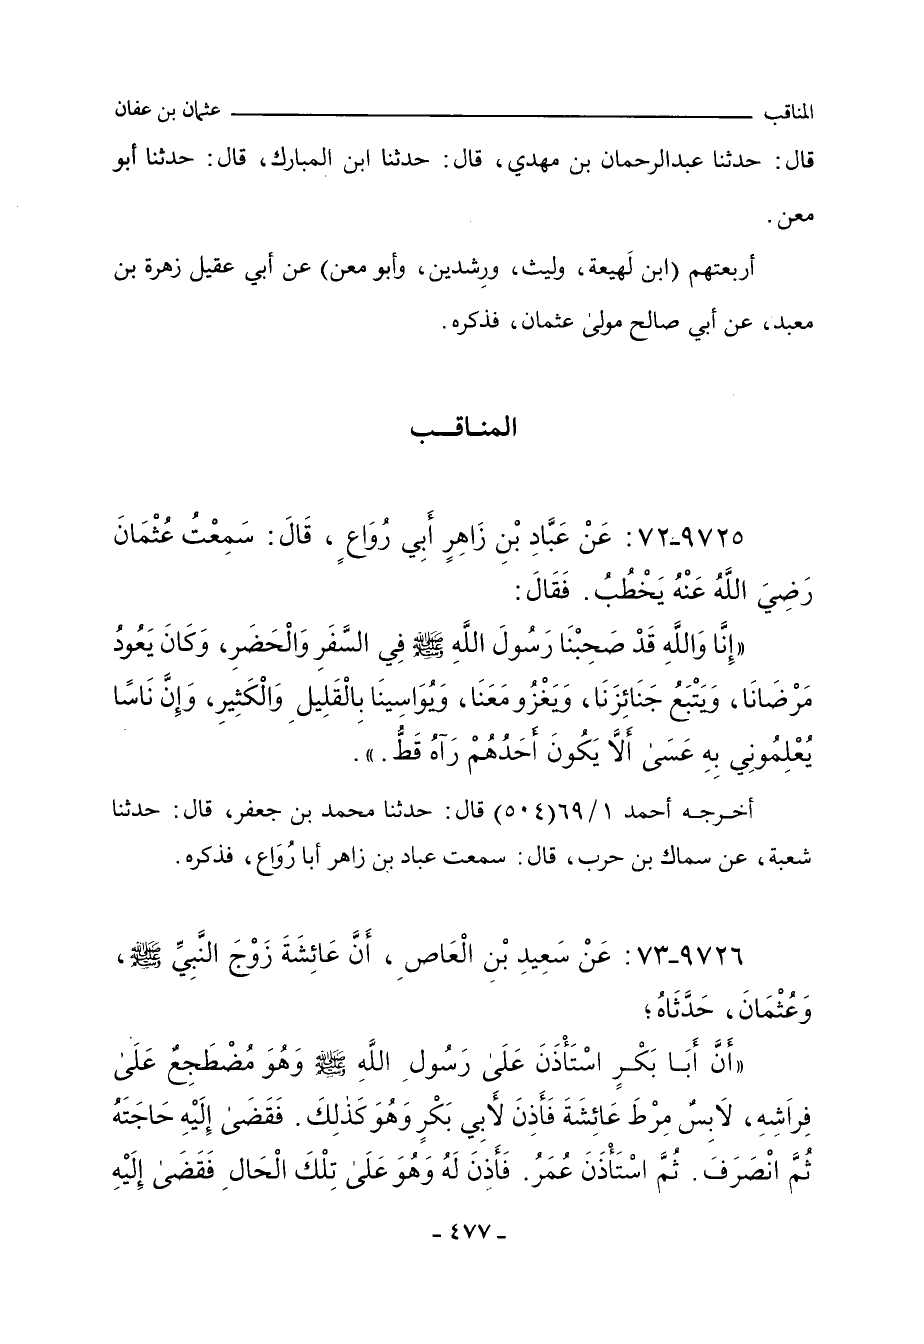 المناقب ـــــــــــــــــــــ عثمان بن عفان
قال: حدثنا عبدالرحمان بن مهدي، قال: حدثنا ابن المبارك، قال: حدثنا أبو
معن.
أربعتهم (ابن لَهيعة، وليث، ورِشدين، وأبو معن) عن أبي عقيل زهرة بن
معبد، عن أبي صالح مولىٰ عثمان، فذكره.
المنـاقــب
٩٧٢٥ـ٧٢: عَنْ عَبَّادِ بْنِ زَاهِرٍ أَبِي رُوَاعٍ، قَالَ: سَمِعْتُ عُثْمَانَ
رَضِيَ اللَّهُ عَنْهُ يَخْطُبُ. فَقَالَ:
«إِنَّا وَاللَّهِ قَدْ صَحِبْنَا رَسُولَ اللَّهِ ﷺ فِي السَّفَرِ وَالْحَضَرِ، وَكَانَ يَعُودُ
مَرْضَانَا، وَيَتْبَعُ جَنَائِزَنَا، وَيَغْزُو مَعَنَا، وَيُوَاسِينَا بِالْقَلِيلِ وَالْكَثِيرِ، وَإِنَّ نَاسًا
يُعْلِمُونِي بِهِ عَسَىٰ أَلَّا يَكُونَ أَحَدُهُمْ رَآهُ قَطُّ.».
أخـرجـه أحمد ١/٦٩(٥٠٤) قال: حدثنا محمد بن جعفر، قال: حدثنا
شعبة، عن سماك بن حرب، قال: سمعت عباد بن زاهر أبا رُوَاع، فذكره.
٩٧٢٦ـ٧٣: عَنْ سَعِيدِ بْنِ الْعَاصِ، أَنَّ عَائِشَةَ زَوْجَ النَّبِيِّ ﷺ،
وَعُثْمَانَ، حَدَّثَاهُ؛
«أَنَّ أَبَـا بَكْـرٍ اسْتَأْذَنَ عَلَىٰ رَسُولِ اللَّهِ ﷺ وَهُوَ مُضْطَجِعٌ عَلَىٰ
فِرَاشِهِ، لَابِسٌ مِرْطَ عَائِشَةَ فَأَذِنَ لأَبِي بَكْرٍ وَهُوَ كَذٰلِكَ. فَقَضَىٰ إِلَيْهِ حَاجَتَهُ
ثُمَّ انْصَرَفَ. ثُمَّ اسْتَأْذَنَ عُمَرُ. فَأَذِنَ لَهُ وَهُوَ عَلَىٰ تِلْكَ الْحَالِ فَقَضَىٰ إِلَيْهِ
- ٤٧٧ -